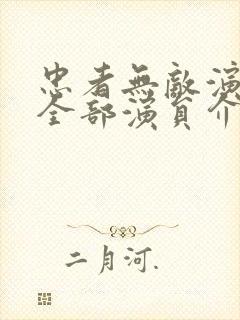 忠者無敵演
全部演員介
二月河.